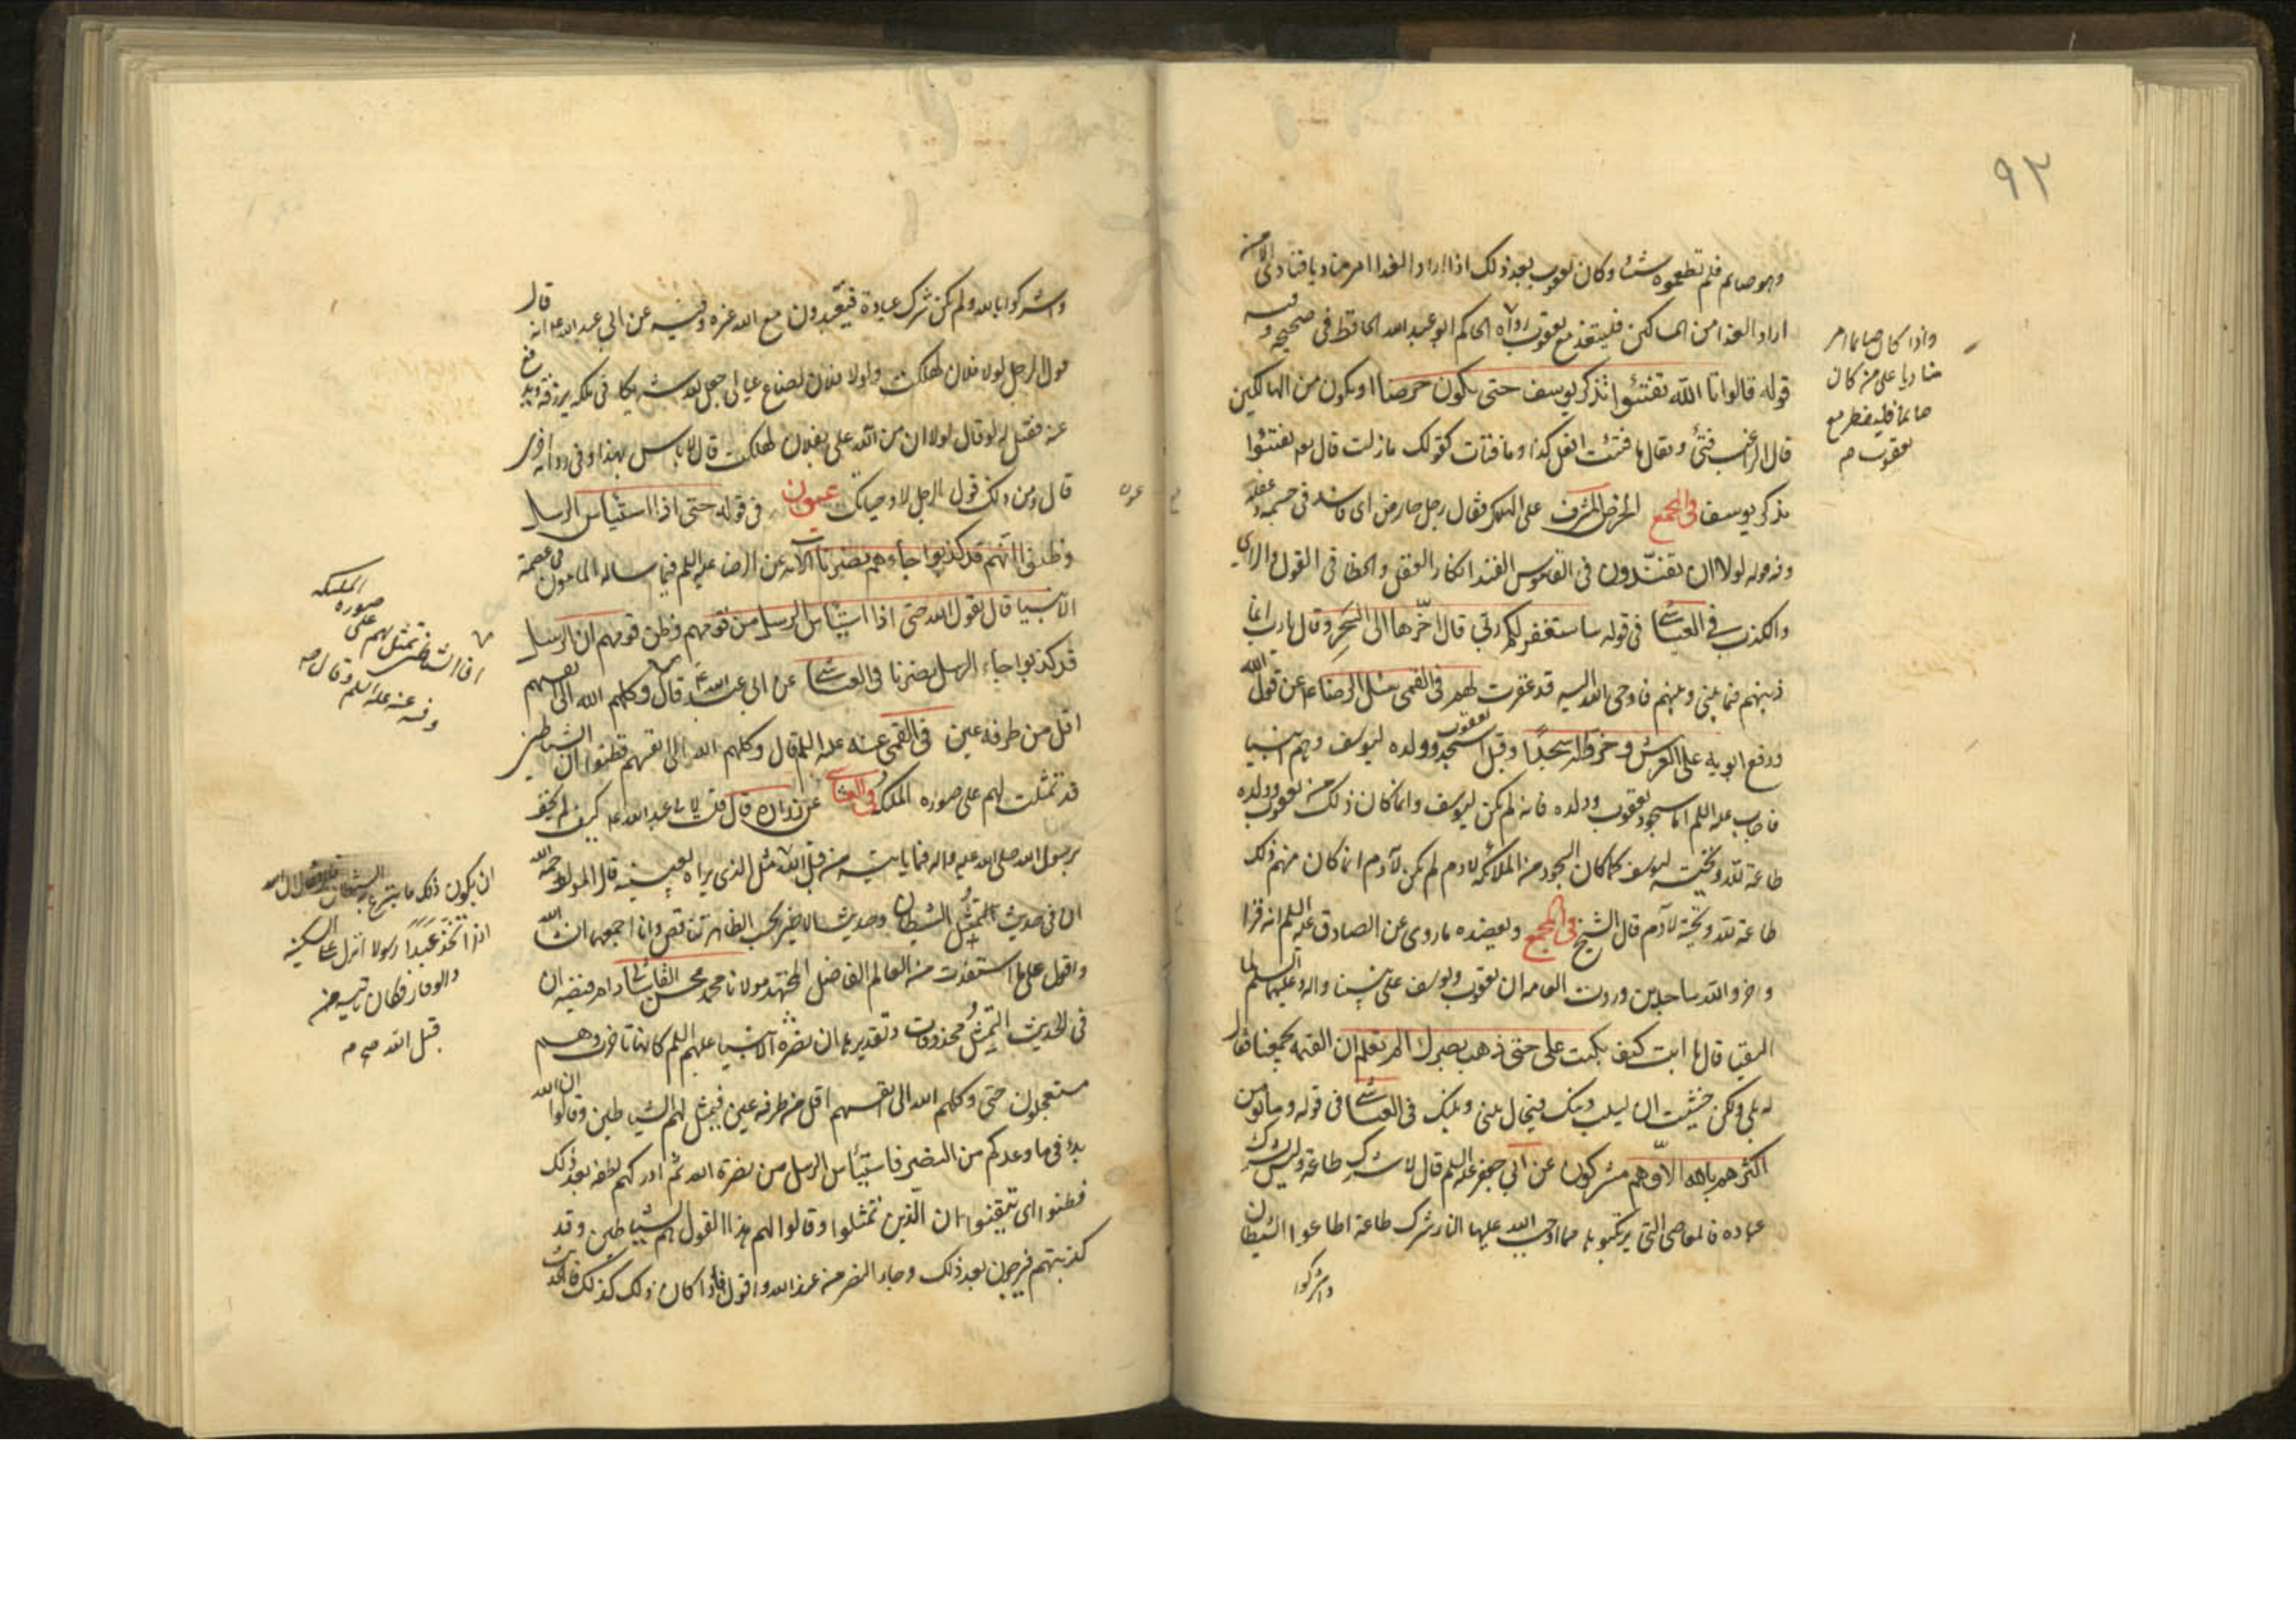 ٩٣
وهو صايم فلم تطعموه شيئا وكان يعقوب بعد ذلك اذا اراد الغدا امر مناديا فنادى الا من
اراد الغدا من المساكين فليتغذ مع يعقوب رواه الحاكم ابو عبد الله الحافظ فى صحيحه وفيه
قوله قالوا تالله تفتئوا تذكر يوسف حتى يكون حرضا او يكون من الهالكين
قال الراغب فتئ ويقال ما فتئت افعل كذا وما فتات كقولك ما زلت قال يعم تفتئوا
تذكر يوسف فى المجمع الحرض المشرف على الهلاك وقال رجل حارض اى فاسد فى جسمه وعقله
وفيه قوله لولا ان تفندون فى القاموس الفند انكار العقل والخطا فى القول والراى
والكذب فى العياشى فى قوله ساستغفر لكم ربى قال اخرها الى السحر وقال يا رب انما
ذنبهم فيما بينى وبينهم فاوحى الله اليه قد غفرت لهم فى القمى سئل الرضا ع عن قول الله
ورفع ابويه على العرش وخروا له سجدا وقيل اسجد يعقوب وولده ليوسف وهم انبيا
فاجاب عليه السلم اما سجود يعقوب وولده فانه لم يكن ليوسف وانما كان ذلك من يعقوب وولده
طاعة لله وتحية ليوسف كما كان السجود من الملائكة لادم لم يكن لآدم انما كان منهم ذلك
طاعة لله وتحية لآدم قال الشيخ فى المجمع ويعضده ما روى عن الصادق عليه السلم انه قرا
وخروا لله ساجدين وروت العامه ان يعقوب ويوسف على نبينا واله وعليهما السلم لما
التقيا قال يا ابت كيف بكيت على حتى ذهب بصرك الم تعلم ان القيمة تجمعنا فقال
له بلى ولكن خشيت ان يسلب دينك فيحال بينى وبينك فى العياشى فى قوله وما يومن
اكثرهم بالله الا وهم مشركون عن ابى جعفر عليه السلم قال لا شرك طاعة وليس شرك
عباده فالمعاصى التى يرتكبو بها مما اوجب الله عليها النار شرك طاعة اطاعوا الشيطان
واشركوا
واذا كان صايما امر
مناديا على من كان
صايما فليفطر مع
يعقوب صح
واشركوا بالله ولم يكن شرك عبادة فيعبدون مع الله غيره وفيه عن ابى عبد الله ع انه قال
قول الرجل لولا فلان لهلكت ولولا فلان لضاع عيالى جعل لله شريكا فى ملكه يرزقه ويدفع
عنه فقيل له لو قال لولا ان من الله على بفلان لهلكت قال لا باس بهذا وفى رواية اخرى
قال ومن ذلك قول الرجل لا وحياتك عيون فى قوله حتى اذا استيئاس الرسل
وظنوا انهم قد كذبوا جاءهم نصرنا الآية عن الرضا عليه السلم فيما ساله المامون فى عصمة
الانبيا قال يقول الله حتى اذا استيئاس الرسل من قومهم وظن قومهم ان الرسل
قد كذبوا جاء الرسل نصرنا فى العياشى عن ابى عبد الله ع قال وكلهم الله الى انفسهم
اقل من طرفة عين فى القمى عنه عليه السلم قال وكلهم الله الى انفسهم فظنوا ان الشياطين
قد تمثلت لهم على صورة الملائكة فى العياشى عن زرارة قال قلت لابى عبد الله ع كيف لم يخف
رسول الله صلى الله عليه واله فيما ياتيه من قبل الله مثل الذى يراه بعينه قال المولف رحمه الله
ان فى حديث التمثل الشيطان وحديث الاخير بحسب الظاهر تناقض وانا اجمعهما ان شاء الله
واقول على ما استفدت من العالم الفاضل المجتهد مولانا محمد محسن القاشانى دام فيضه ان
فى الحديث التمثل محذوفات وتقديرها ان نصرة الانبيا عليهم السلم كانها تاخرت وهم
مستعجلون حتى وكلهم الله الى انفسهم اقل من طرفة عين فيمثل لهم الشياطين وقالوا ان الله
بدء فى ما وعدكم من النصر فاستيئاس الرسل من نصرة الله ثم ادركهم لطفه بعد ذلك
فظنوا اى تيقنوا ان الذين تمثلوا وقالوا لهم هذا القول هم الشياطين وقد
كذبتهم فرجون بعد ذلك وجاء النصر من عند الله واقول فاذا كان ذلك كذلك فاحديث
الملائكة
صورة
افا الشياطين تمثل لهم على
وفيه عنه عليه السلم وقال صح
ان يكون ذلك ما ينزغ به الشيطان قال فقال ان الله
اذا اتخذ عبدا رسولا انزل عليه السكينة
والوقار فكان ياتيه من
قبل الله صح صح